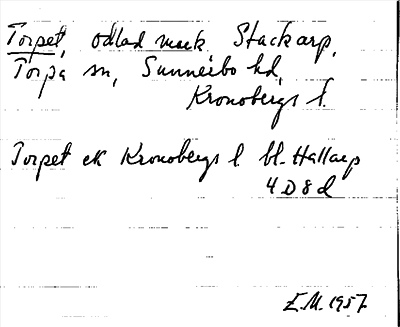 Torpet, odlad mark, Stackarp,
Torpa sn, Sunnerbo hd,
Kronobergs l.
Torpet ek Kronobergs l bl. Hallarp
4 D 8 d
E.M. 1957